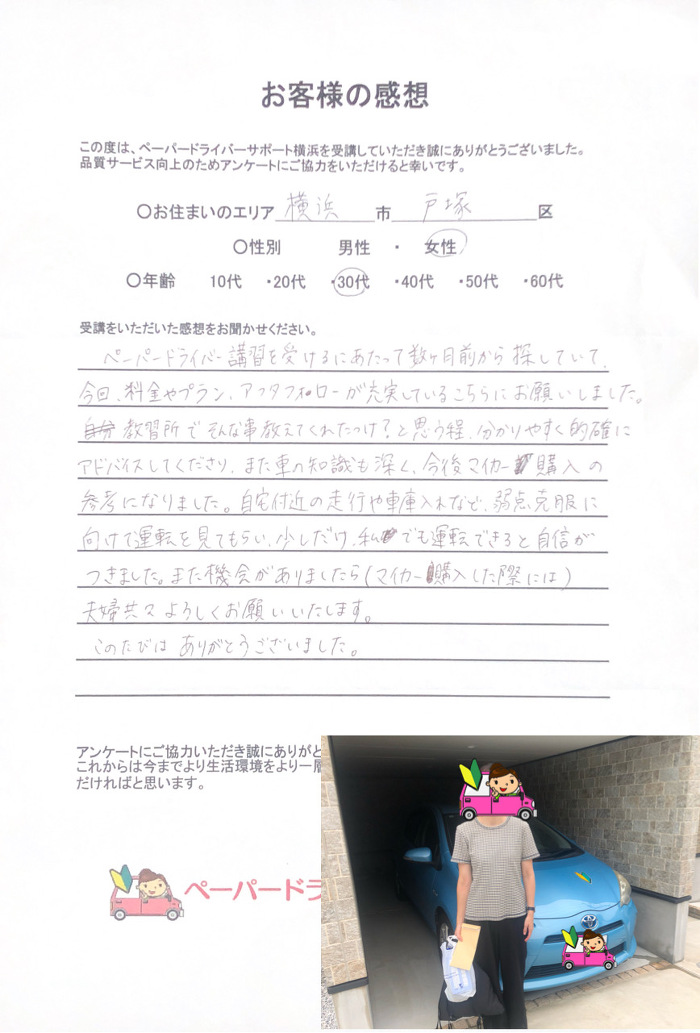 お客様の感想
この度は、ペーパードライバーサポート横浜を受講していただき誠にありがとうございました。
品質サービス向上のためアンケートにご協力をいただけると幸いです。
〇お住まいのエリア 横浜 市 戸塚 区
〇性別 男性 ・ 女性
〇年齢 10代 ・20代 ・30代 ・40代 ・50代 ・60代
受講をいただいた感想をお聞かせください。
ペーパードライバー講習を受けるにあたって数ヶ月前から探していて、
今回、料金やプラン、アフタフォローが充実しているこちらにお願いしました。
自分 教習所でそんな事教えてくれたっけ?と思う程、分かりやすく的確に
アドバイスしてくださり、また車の知識も深く、今後マイカー購入の
参考になりました。自宅付近の走行や車庫入れなど、弱点克服に
向けて運転を見てもらい、少しだけ、私でも運転できると自信が
つきました。また機会がありましたら(マイカー購入した際には)
夫婦共々よろしくお願いいたします。
このたびは ありがとうございました。
アンケートにご協力いただき誠にありがと
これからは今までより生活環境をより一層
だければと思います。
ペーパードラ